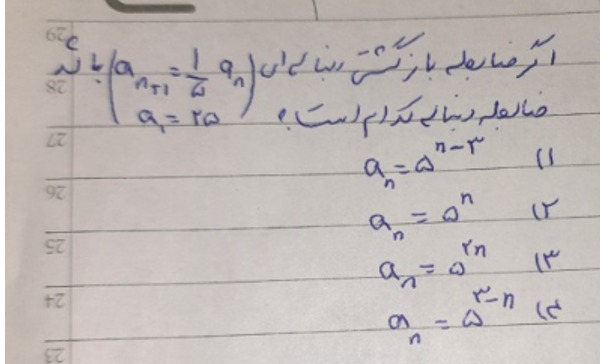 اگر ضابطه بازگشتی دنباله‌ای (a_{n+1} = \frac{1}{۵} a_n , a_۱ = ۲۵) باشد
ضابطه دنباله کدام است؟
۱) a_n = ۵^{n-۳}
۲) a_n = ۵^n
۳) a_n = ۵^{۲n}
۴) a_n = ۵^{۳-n}
29
28
27
26
25
24
23